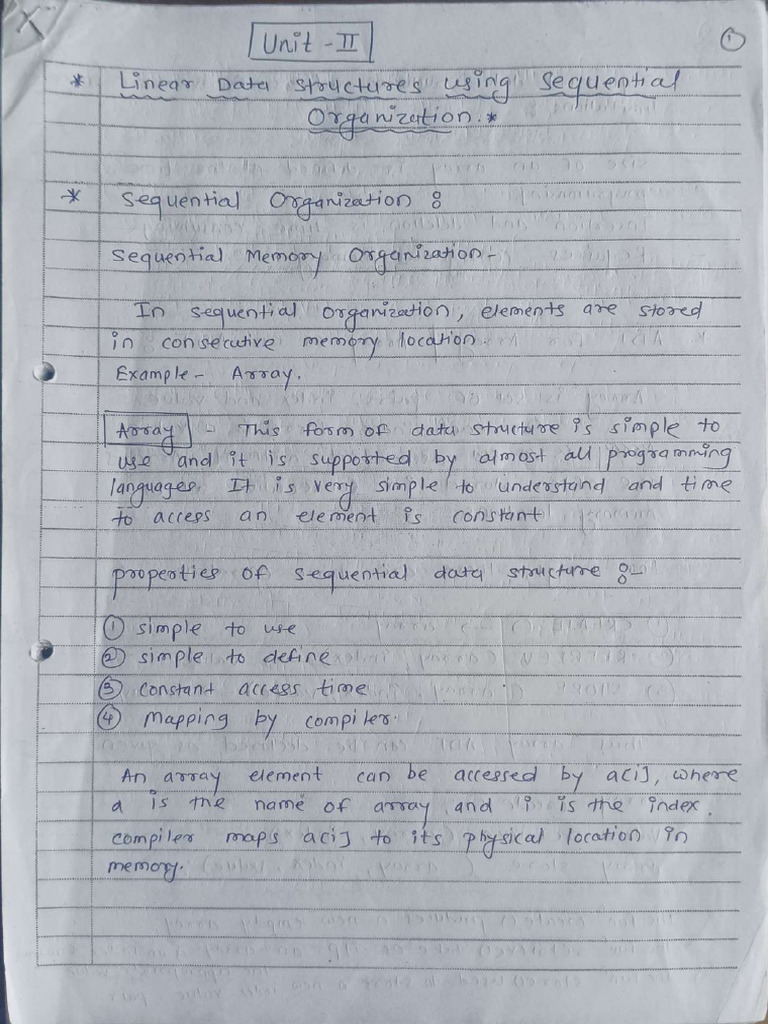 Unit - II
1
* Linear Data structures using sequential
Organization. *
* Sequential Organization :
Sequential Memory Organization -
In sequential organization, elements are stored
in consecutive memory location.
Example - Array.
Array - This form of data structure is simple to
use and it is supported by almost all programming
languages. It is very simple to understand and time
to access an element is constant
properties of sequential data structure :-
① simple to use
② simple to define
③ constant access time
④ Mapping by compiler.
An array element can be accessed by a[i], where
a is the name of array and i is the index.
compiler maps a[i] to its physical location in
memory.